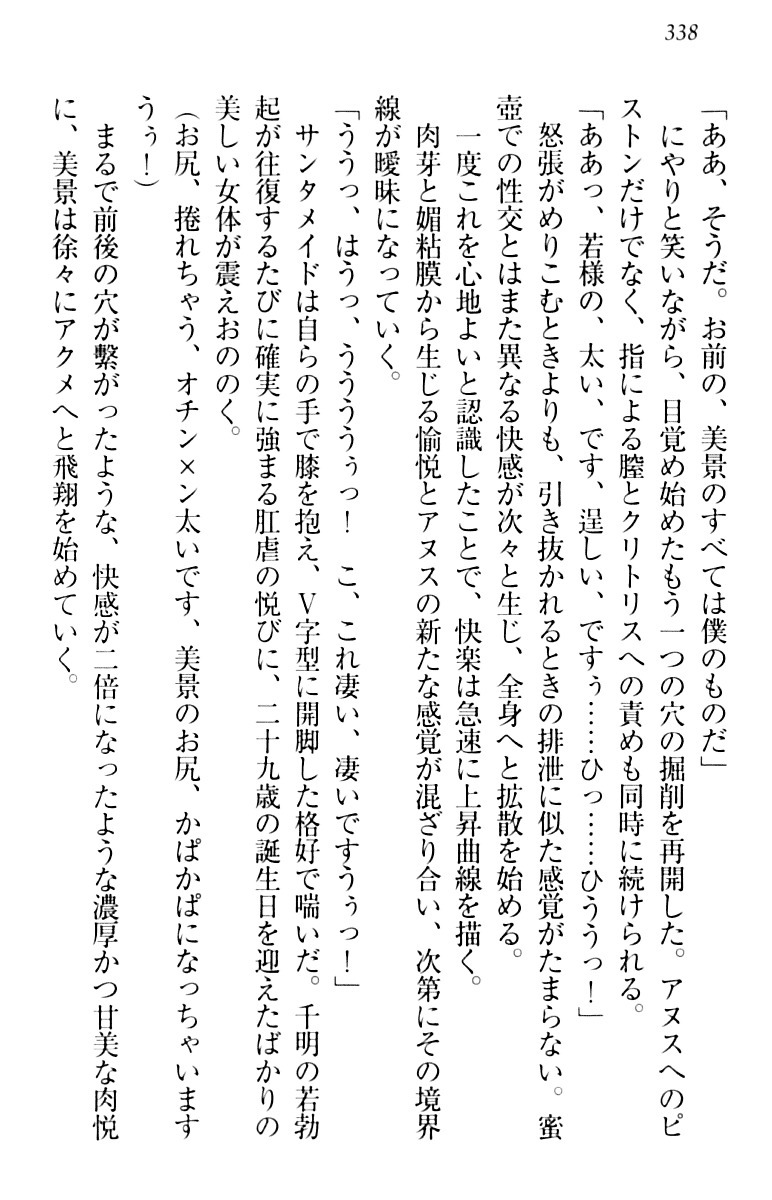 338
「ああ、そうだ。お前の、美景のすべては僕のものだ」
にやりと笑いながら、目覚め始めたもう一つの穴の掘削を再開した。アヌスへのピ
ストンだけでなく、指による膣とクリトリスへの責めも同時に続けられる。
「ああっ、若様の、太い、です、逞しい、ですぅ……ひっ……ひううっ！」
怒張がめりこむときよりも、引き抜かれるときの排泄に似た感覚がたまらない。蜜
壺での性交とはまた異なる快感が次々と生じ、全身へと拡散を始める。
一度これを心地よいと認識したことで、快楽は急速に上昇曲線を描く。
肉芽と媚粘膜から生じる愉悦とアヌスの新たな感覚が混ざり合い、次第にその境界
線が曖昧になっていく。
「ううっ、はうっ、うううぅっ！　こ、これ凄い、凄いですうぅっ！」
サンタメイドは自らの手で膝を抱え、Ｖ字型に開脚した格好で喘いだ。千明の若勃
起が往復するたびに確実に強まる肛虐の悦びに、二十九歳の誕生日を迎えたばかりの
美しい女体が震えおののく。
（お尻、捲れちゃう、オチン×ン太いです、美景のお尻、かぱかぱになっちゃいます
うぅ！）
まるで前後の穴が繋がったような、快感が二倍になったような濃厚かつ甘美な肉悦
に、美景は徐々にアクメへと飛翔を始めていく。